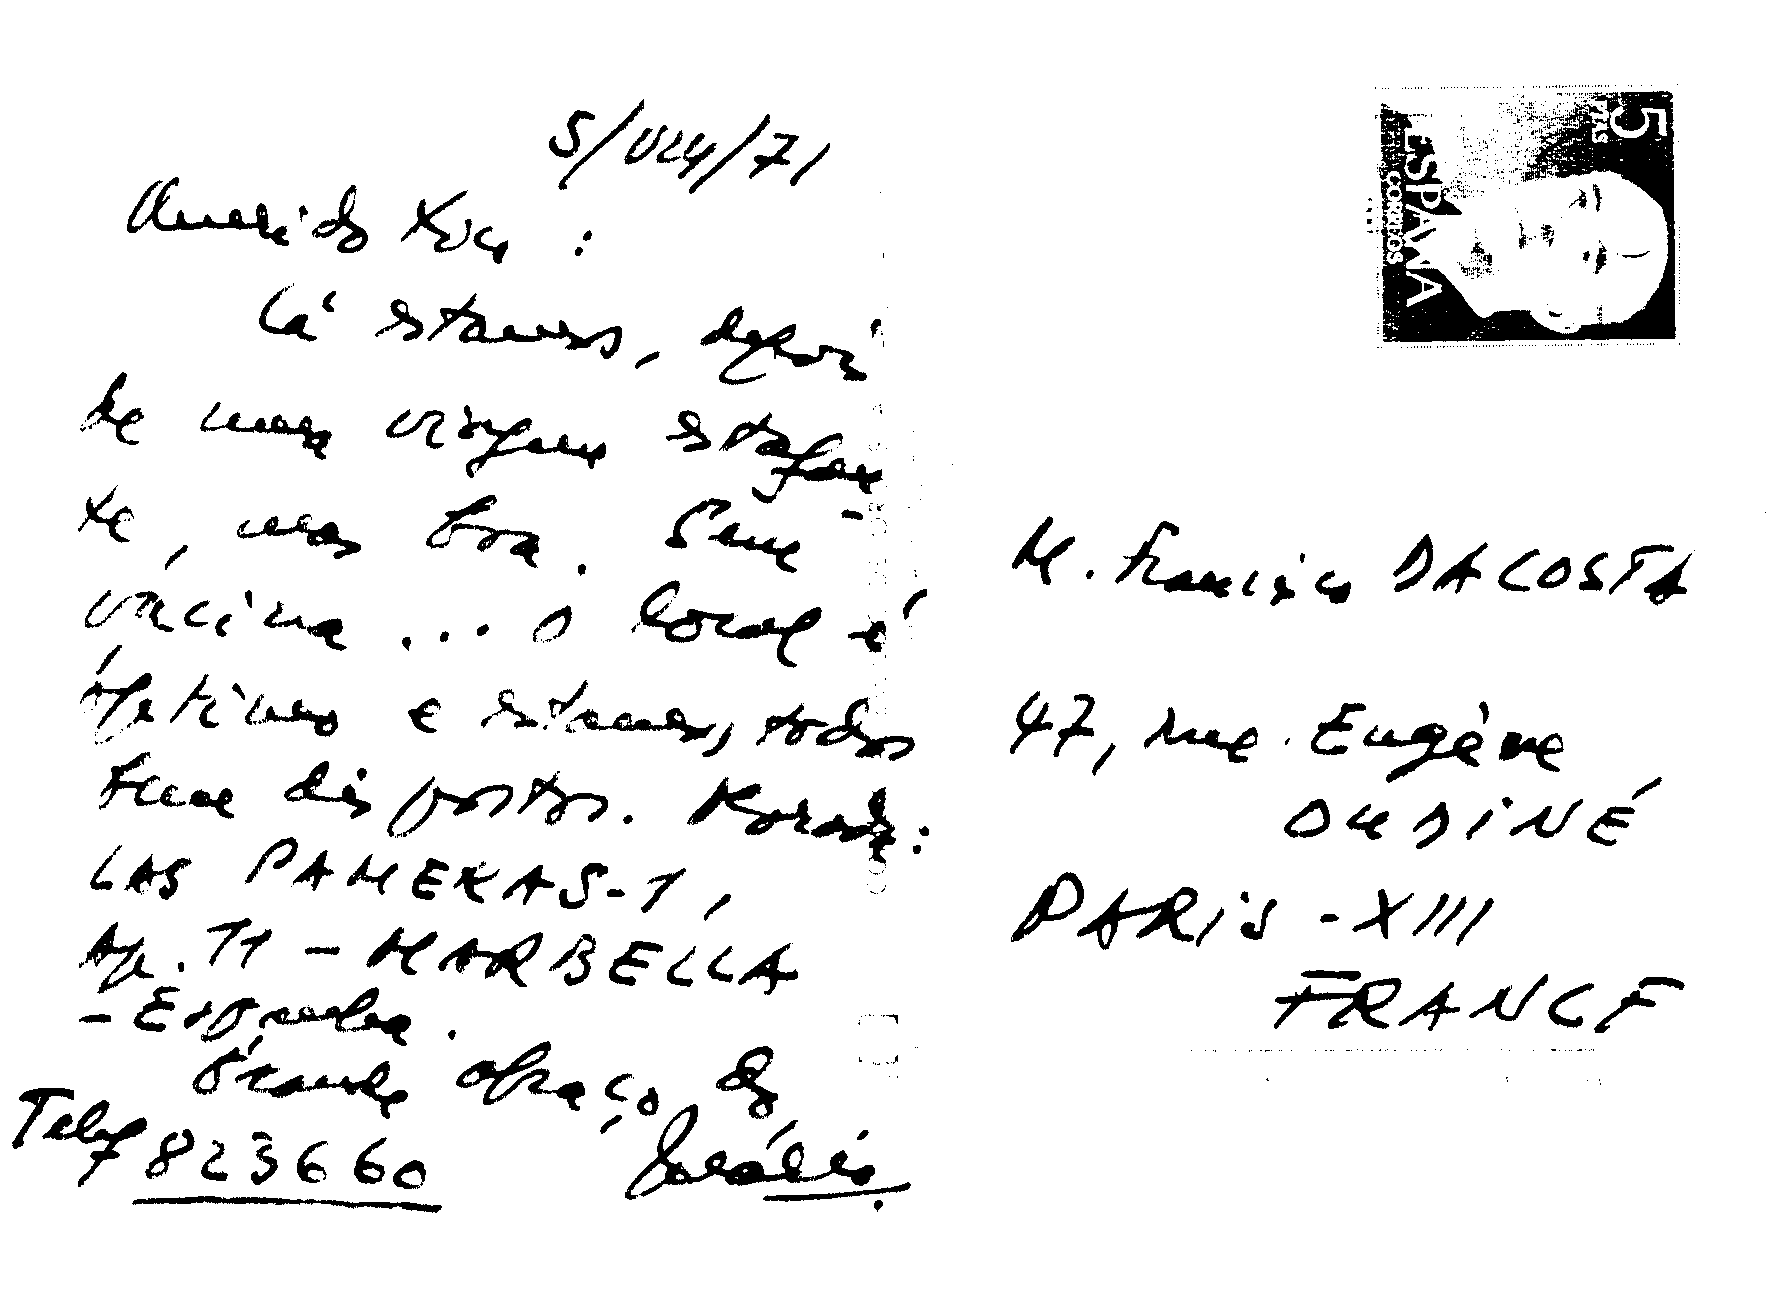 5/VII/71
Querido Xico :
Cá estamos, depois
de uma viagem estafan-
te, mas boa. Sem
vacina... O local é
óptimo e estamos, todos
bem dispostos. Morada:
LAS PAMERAS-1,
Ap. 11 - MARBELLA
- Espanha.
Grande abraço do
Telef 823660
5 PTAS
ESPAÑA
CORREOS
M. Francisco DACOSTA
47, rue Eugène
OUDINÉ
PARIS - XIII
FRANCE